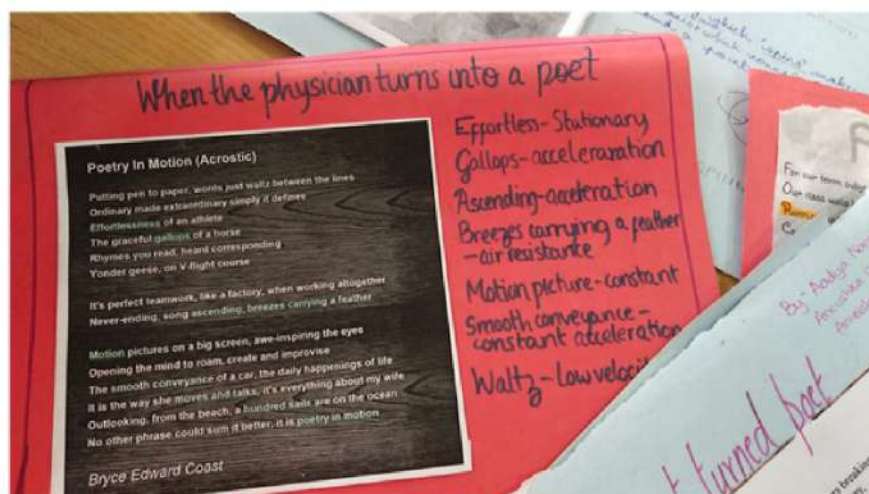 When the physician turns into a poet
Poetry In Motion (Acrostic)
Putting pen to paper, words just waltz between the lines
Ordinary made extraordinary simply it defines
Effortlessness of an athlete
The graceful gallops of a horse
Rhymes you read, heard corresponding
Yonder geese, on V-flight course
It's perfect teamwork, like a factory, when working altogether
Never-ending, song ascending, breezes carrying a feather
Motion pictures on a big screen, awe-inspiring the eyes
Opening the mind to roam, create and improvise
The smooth conveyance of a car, the daily happenings of life
It is the way she moves and talks, it's everything about my wife
Outlooking, from the beach, a hundred sails are on the ocean
No other phrase could sum it better, it is poetry in motion
Bryce Edward Coast
Effortless-Stationary
Gallops-acceleraration
Ascending-acceleration
Breezes carrying a feather
-air resistance
Motion picture-constant
Smooth conveyance-
constant acceleration
Waltz-Low
For our
Our
By: Aadya
turned poet
breaking